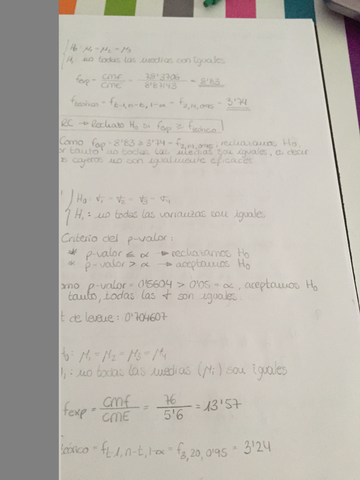 H₀: μ₁ = μ₂ = μ₃
H₁: no todas las medias son iguales
fexp = CMF/CME = 78'3706/8'87143 = 8'83
fteórico = f t-1, n-t, 1-α = f 2,14,0'95 = 3'74
RC → Rechazo H₀ si fexp ≥ fteórica
Como fexp = 8'83 > 3'74 = f 2,14,0'95, rechazamos H₀,
por tanto no todas las medias son iguales, es decir
los cajeros no son igualmente eficaces
H₀: V₁ = V₂ = V₃ = V₄
H₁: no todas las varianzas son iguales.
Criterio del p-valor:
* p-valor ≤ α → rechazamos H₀
* p-valor > α → aceptamos H₀
omo p-valor = 0'5604 > 0'05 = α, aceptamos H₀
tanto, todas las son iguales
t de levene: 0'704607
H₀: μ₁ = μ₂ = μ₃ = μ₄
H₁: no todas las medias (μi) son iguales
fexp = CMF/CME = 76/5'6 = 13'57
fteórico = f t-1, n-t, 1-α = f 3,20,0'95 = 3'24